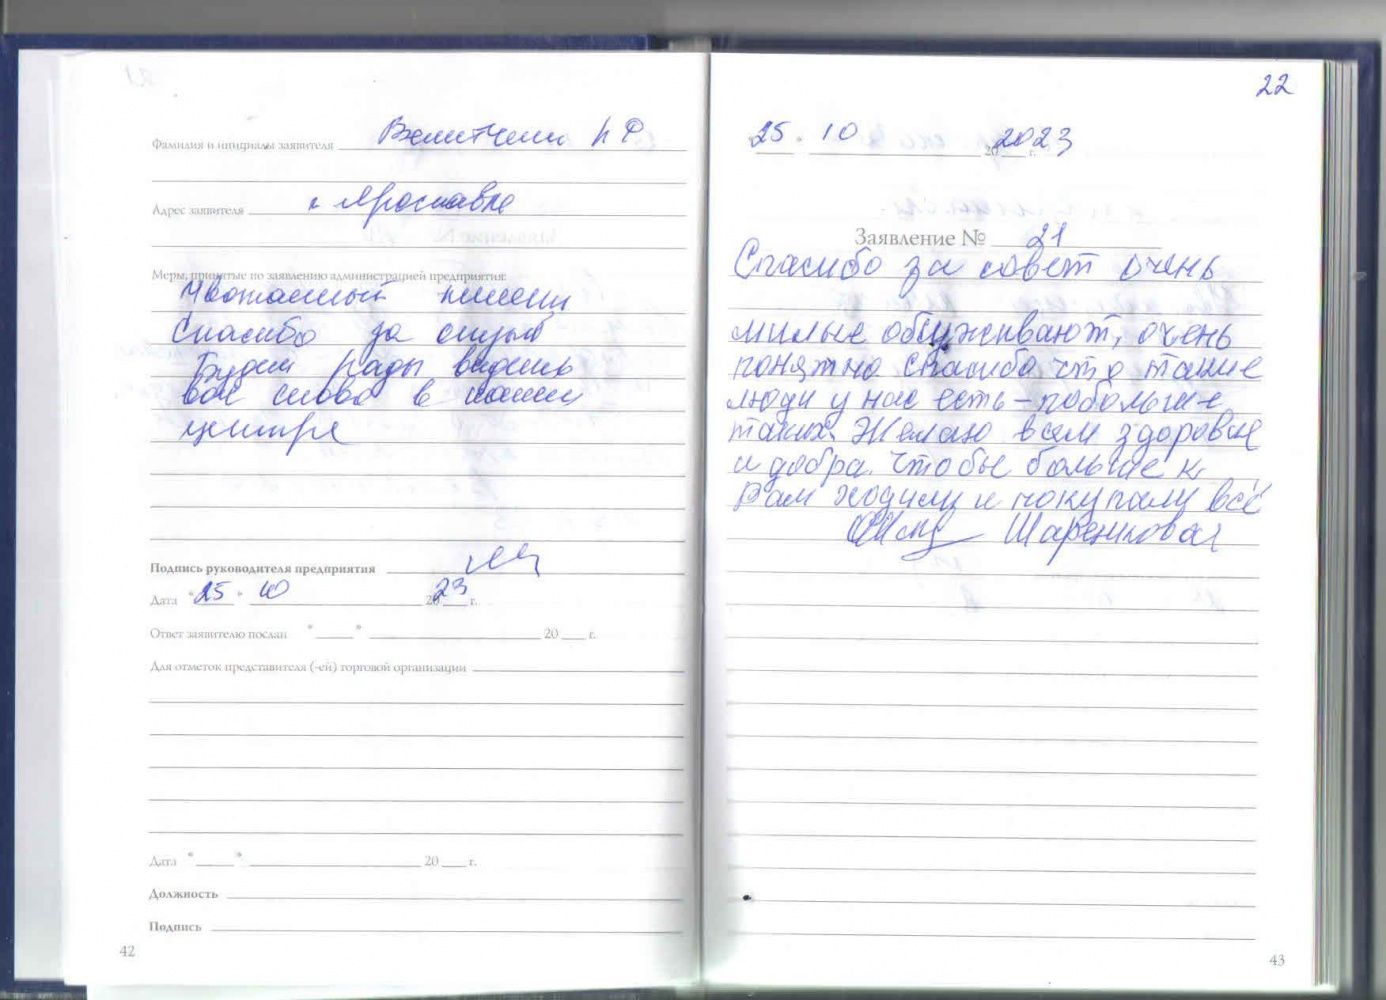 Фамилия и инициалы заявителя
Адрес заявителя г Ярославль
Меры, принятые по заявлению администрацией предприятия:
Спасибо за отзыв
Будем рады видеть
вас снова в нашем
центре
Подпись руководителя предприятия
Дата "25" 10 2023 г.
Ответ заявителю послан "___" ___ 20 ___ г.
Для отметок представителя (-ей) торговой организации
Дата "___" ___ 20 ___ г.
Должность
Подпись
42
22
"25" 10 20 2023 г.
Заявление № 21
Спасибо за совет очень
милые обслуживают, очень
понятно Спасибо что такие
люди у нас есть – побольше
таких. Желаю всем здоровья
и добра. Чтобы больше к
Вам ходили и покупали всё
43